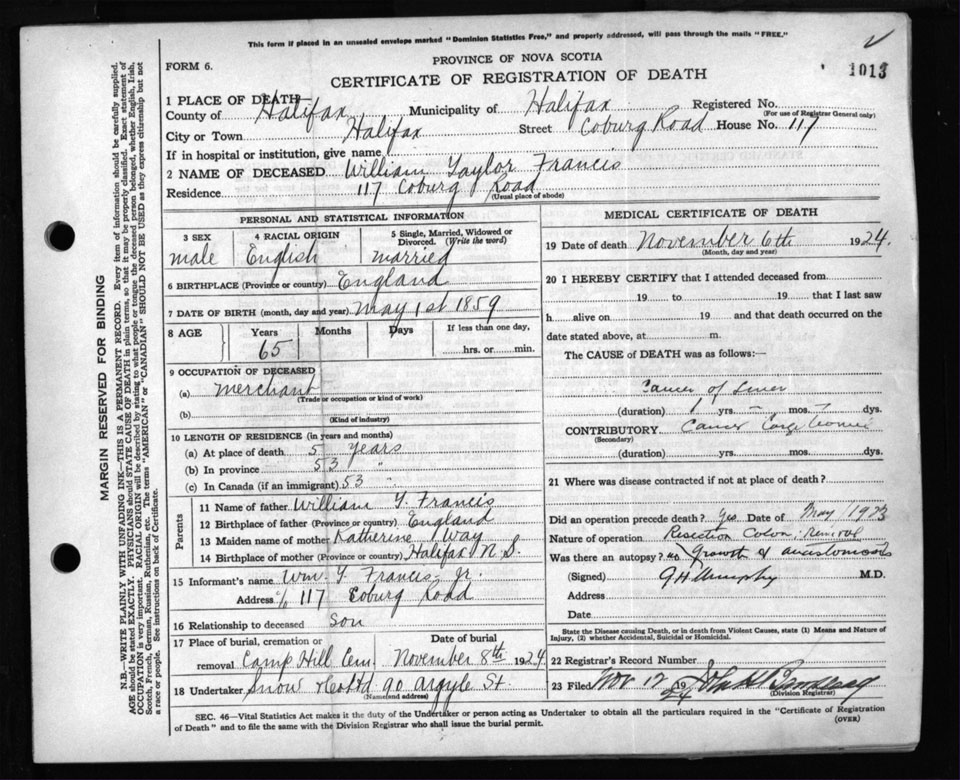 This form if placed in an unsealed envelope marked "Dominion Statistics Free," and properly addressed, will pass through the mails "FREE."
FORM 6.
PROVINCE OF NOVA SCOTIA
CERTIFICATE OF REGISTRATION OF DEATH
1013
1 PLACE OF DEATH
County of Halifax Municipality of Halifax Registered No.
(For use of Registrar General only)
City or Town Halifax Street Coburg Road House No. 117
If in hospital or institution, give name
2 NAME OF DECEASED William Taylor Francis
Residence 117 Coburg Road
(Usual place of abode)
PERSONAL AND STATISTICAL INFORMATION
3 SEX 4 RACIAL ORIGIN 5 Single, Married, Widowed or Divorced. (Write the word)
male English married
6 BIRTHPLACE (Province or country) England
7 DATE OF BIRTH (month, day and year) May 1st 1859
8 AGE Years Months Days If less than one day,
65 hrs. or min.
9 OCCUPATION OF DECEASED
(a) merchant
(Trade or occupation or kind of work)
(b)
(Kind of industry)
10 LENGTH OF RESIDENCE (in years and months)
(a) At place of death 5 years
(b) In province 53 "
(c) In Canada (if an immigrant) 53 "
Parents
11 Name of father William T. Francis
12 Birthplace of father (Province or country) England
13 Maiden name of mother Katherine Way
14 Birthplace of mother (Province or country) Halifax N.S.
15 Informant's name Wm. T. Francis, Jr.
Address c/o 117 Coburg Road
16 Relationship to deceased Son
17 Place of burial, cremation or removal Date of burial
Camp Hill Cem. November 8th 1924
18 Undertaker Snow & Co Ltd 90 Argyle St.
(Name and address)
MEDICAL CERTIFICATE OF DEATH
19 Date of death November 6th 1924.
(Month, day and year)
20 I HEREBY CERTIFY that I attended deceased from
19 to 19 that I last saw
h alive on 19 and that death occurred on the
date stated above, at m.
The CAUSE of DEATH was as follows:
Cancer of Liver
(duration) 1 yrs. - mos. - dys.
CONTRIBUTORY Cancer
(Secondary)
(duration) yrs. mos. dys.
21 Where was disease contracted if not at place of death?
Did an operation precede death? Yes Date of May 1923
Nature of operation Resection Colon, removal
Was there an autopsy? no Growth & anastomosis
(Signed) G H Murphy M.D.
Address
Date
State the Disease causing Death, or in death from Violent Causes, state (1) Means and Nature of
Injury, (2) whether Accidental, Suicidal or Homicidal.
22 Registrar's Record Number
23 Filed Nov 12 1924 John
(Division Registrar)
SEC. 46—Vital Statistics Act makes it the duty of the Undertaker or person acting as Undertaker to obtain all the particulars required in the "Certificate of Registration
of Death" and to file the same with the Division Registrar who shall issue the burial permit.
(OVER)
MARGIN RESERVED FOR BINDING
N.B.—WRITE PLAINLY WITH UNFADING INK—THIS IS A PERMANENT RECORD. Every item of information should be carefully supplied.
AGE should be stated EXACTLY. PHYSICIANS should STATE CAUSE OF DEATH in plain terms, so that it may be properly classified. Exact statement of
OCCUPATION is very important. RACIAL ORIGIN will be described by stating to what people or tongue the deceased person belonged, whether English, Irish,
Scotch, French, German, Russian, Ruthenian, etc. The terms "AMERICAN" or "CANADIAN" SHOULD NOT BE USED as they express citizenship but not
a race or people. See instructions on back of Certificate.